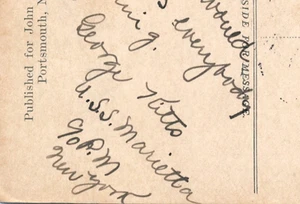 would
s everybody
ing.
George Kitts
U.S.S. Marietta
% P.M
New York
Published for John
Portsmouth, N
SIDE FOR MESSAGE.